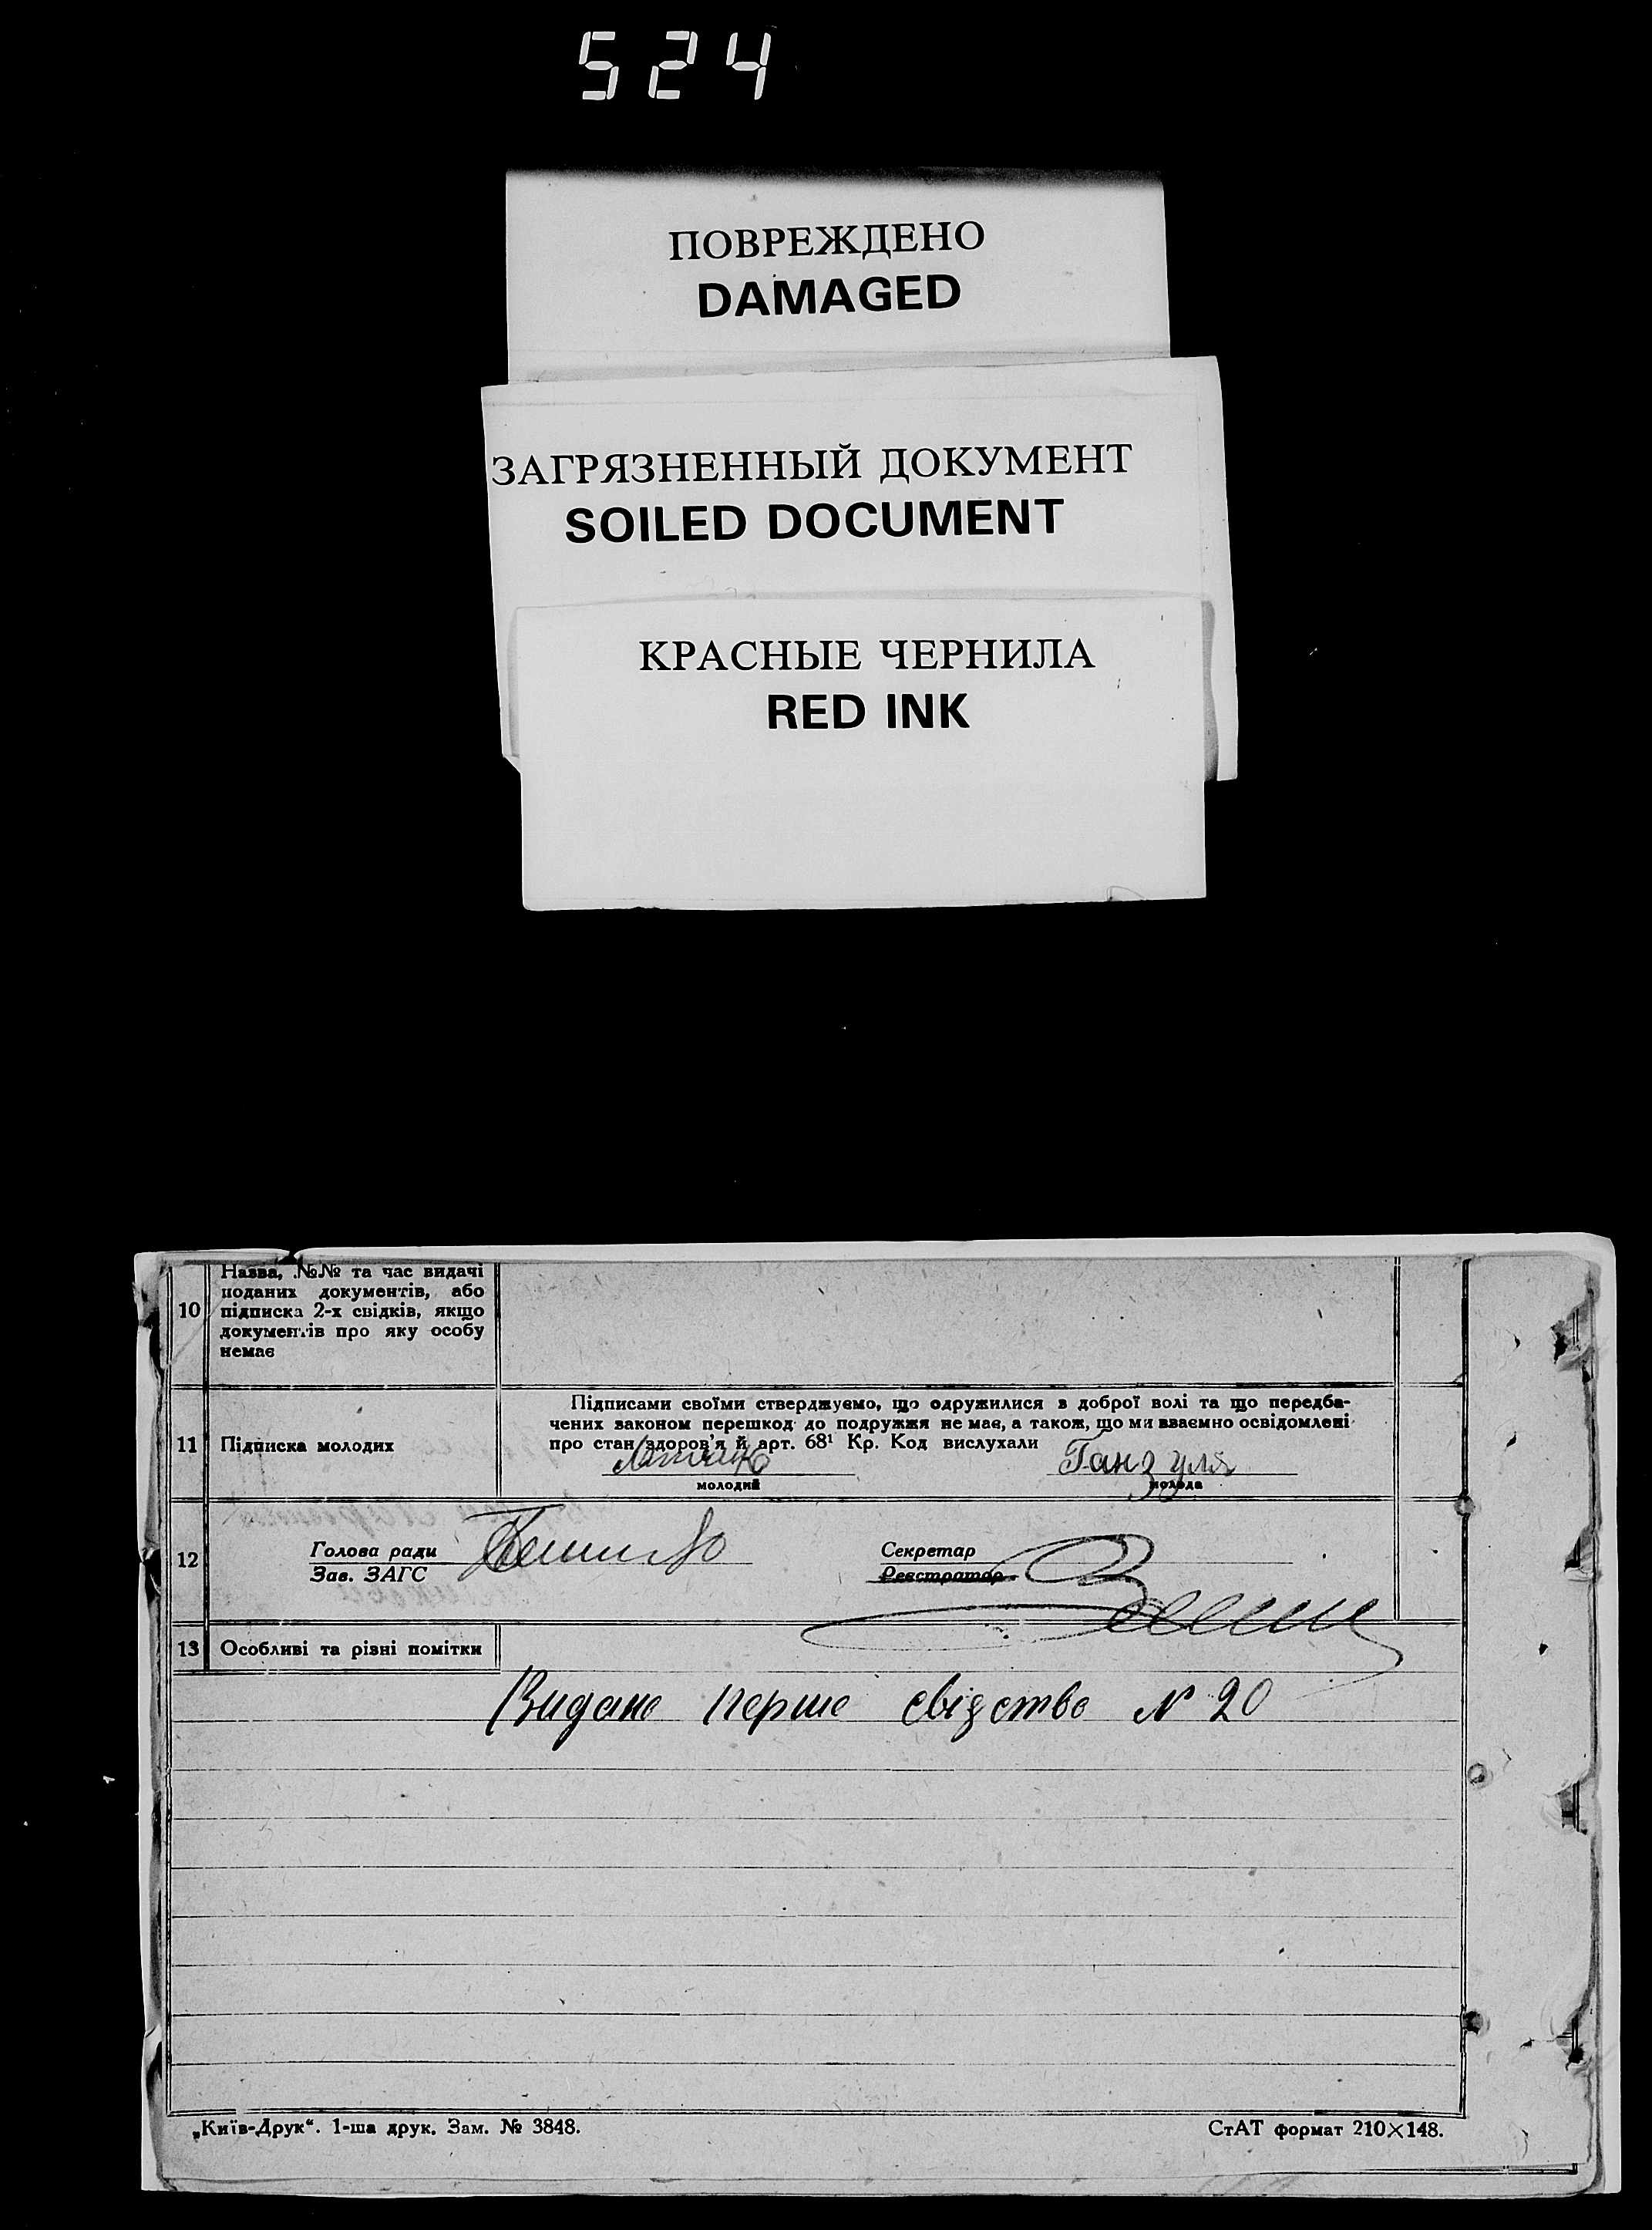 524
ПОВРЕЖДЕНО
DAMAGED
ЗАГРЯЗНЕННЫЙ ДОКУМЕНТ
SOILED DOCUMENT
КРАСНЫЕ ЧЕРНИЛА
RED INK
10
Назва, №№ та час видачі
поданих документів, або
підписка 2-х свідків, якщо
документів про яку особу
немає
11 Підписка молодих
Підписами своїми стверджуємо, що одружилися в доброї волі та що передба-
чених законом перешкод до подружжя не має, а також, що ми взаємно освідомлені
про стан здоров'я й арт. 68¹ Кр. Код вислухали
Ганзуля
молодий
молода
12
Голова ради
Зав. ЗАГС
Секретар
Реєстратор
13 Особливі та різні помітки
Видано перше свідство № 20
„Київ-Друк“. 1-ша друк. Зам. № 3848.
СтАТ формат 210×148.